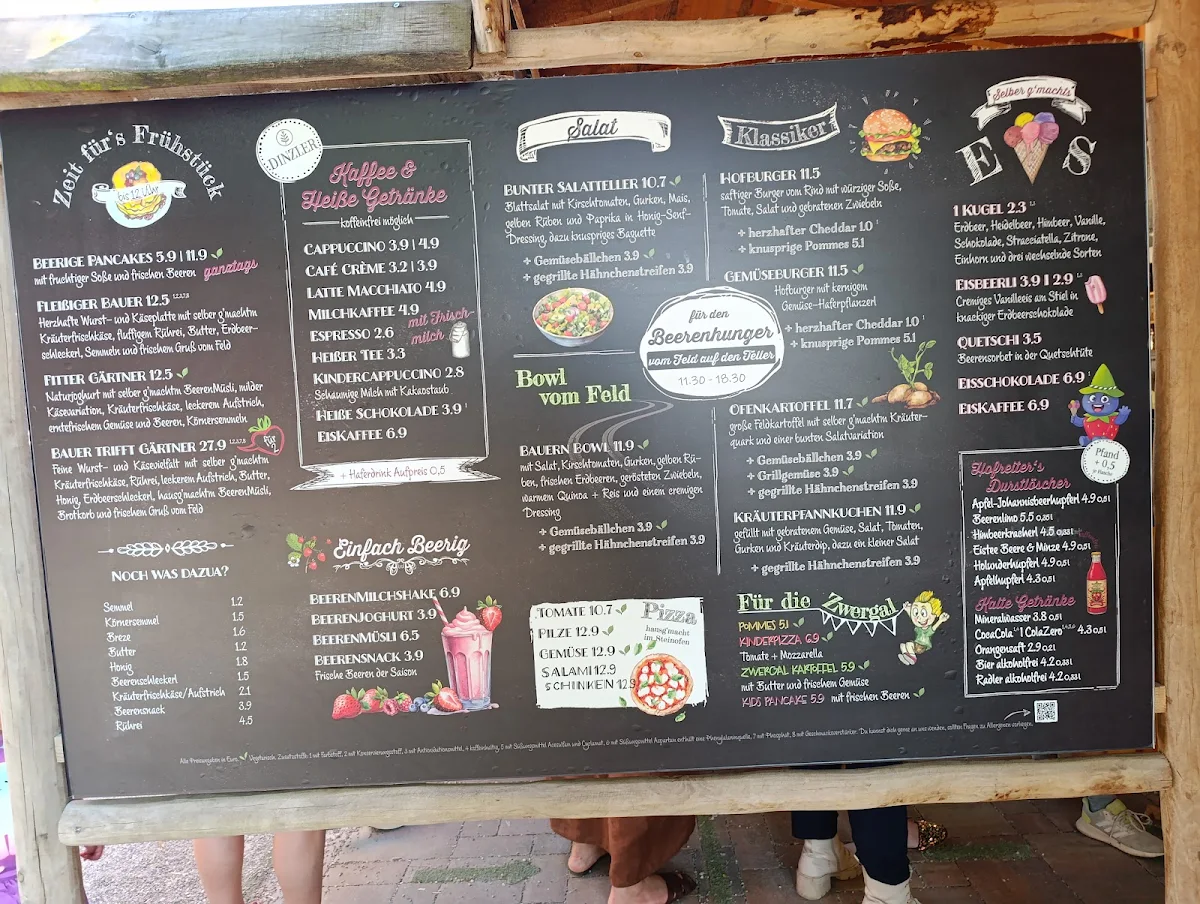 Zeit für's Frühstück
bis 12 Uhr
BEERIGE PANCAKES 5.9 | 11.9
mit fruchtiger Soße und frischen Beeren ganztags
FLEIßIGER BAUER 12.5
Herzhafte Wurst- und Käseplatte mit selber g'machtm
Kräuterfrischkäse, fluffigem Rührei, Butter, Erdbeer-
schleckerl, Semmeln und frischem Gruß vom Feld
FITTER GÄRTNER 12.5
Naturjoghurt mit selber g'machtm BeerenMüsli, milder
Käsevariation, Kräuterfrischkäse, leckerem Aufstrich,
erntefrischem Gemüse und Beeren, Körnersemmeln
BAUER TRIFFT GÄRTNER 27.9
für 2
Feine Wurst- und Käsevielfalt mit selber g'machtm
Kräuterfrischkäse, Rührei, leckerem Aufstrich, Butter,
Honig, Erdbeerschleckerl, hausg'machtm BeerenMüsli,
Brotkorb und frischem Gruß vom Feld
NOCH WAS DAZUA?
Semmel 1.2
Körnersemmel 1.5
Breze 1.6
Butter 1.2
Honig 1.8
Beerenschleckerl 1.5
Kräuterfrischkäse/Aufstrich 2.1
Beerensnack 3.9
Rührei 4.5
DINZLER
Kaffee &
Heiße Getränke
koffeinfrei möglich
CAPPUCCINO 3.9 | 4.9
CAFÉ CRÈME 3.2 | 3.9
LATTE MACCHIATO 4.9
MILCHKAFFEE 4.9
mit Frisch-
milch
ESPRESSO 2.6
HEIßER TEE 3.3
KINDERCAPPUCCINO 2.8
Schaumige Milch mit Kakaostaub
HEIßE SCHOKOLADE 3.9
EISKAFFEE 6.9
+ Haferdrink Aufpreis 0,5
Einfach Beerig
BEERENMILCHSHAKE 6.9
BEERENJOGHURT 3.9
BEERENMÜSLI 6.5
BEERENSNACK 3.9
Frische Beeren der Saison
Salat
BUNTER SALATTELLER 10.7
Blattsalat mit Kirschtomaten, Gurken, Mais,
gelben Rüben und Paprika in Honig-Senf-
Dressing, dazu knuspriges Baguette
+ Gemüsebällchen 3.9
+ gegrillte Hähnchenstreifen 3.9
Bowl
vom Feld
BAUERN BOWL 11.9
mit Salat, Kirschtomaten, Gurken, gelben Rü-
ben, frischen Erdbeeren, gerösteten Zwiebeln,
warmen Quinoa + Reis und einem cremigen
Dressing
+ Gemüsebällchen 3.9
+ gegrillte Hähnchenstreifen 3.9
Pizza
hausg'macht
im Steinofen
TOMATE 10.7
PILZE 12.9
GEMÜSE 12.9
SALAMI 12.9
SCHINKEN 12.9
für den
Beerenhunger
vom Feld auf den Teller
11.30 - 18.30
Klassiker
HOFBURGER 11.5
saftiger Burger vom Rind mit würziger Soße,
Tomate, Salat und gebratenen Zwiebeln
+ herzhafter Cheddar 1.0
+ knusprige Pommes 5.1
GEMÜSEBURGER 11.5
Hofburger mit kernigem
Gemüse-Haferpflanzerl
+ herzhafter Cheddar 1.0
+ knusprige Pommes 5.1
OFENKARTOFFEL 11.7
große Feldkartoffel mit selber g'machtm Kräuter-
quark und einer bunten Salatvariation
+ Gemüsebällchen 3.9
+ Grillgemüse 3.9
+ gegrillte Hähnchenstreifen 3.9
KRÄUTERPFANNKUCHEN 11.9
gefüllt mit gebratenem Gemüse, Salat, Tomaten,
Gurken und Kräuterdip, dazu ein kleiner Salat
+ gegrillte Hähnchenstreifen 3.9
Für die Zwergal
POMMES 5.1
KINDERPIZZA 6.9
Tomate + Mozzarella
ZWERGAL KARTOFFEL 5.9
mit Butter und frischem Gemüse
KIDS PANCAKE 5.9 mit frischen Beeren
Selber g'machts
EIS
1 KUGEL 2.3
Erdbeer, Heidelbeer, Himbeer, Vanille,
Schokolade, Stracciatella, Zitrone,
Einhorn und drei wechselnde Sorten
EISBEERLI 3.9 | 2.9
Cremiges Vanilleeis am Stiel in
knackiger Erdbeerschokolade
QUETSCHI 3.5
Beerensorbet in der Quetschtüte
EISSCHOKOLADE 6.9
EISKAFFEE 6.9
Pfand
+ 0,5
je Flasche
Hofreiter's
Durstlöscher
Apfel-Johannisbeerhupferl 4.9 0,5l
Beerenlimo 5.5 0,25l
Himbeerkracherl 4.5 0,33l
Eistee Beere & Minze 4.9 0,5l
Holunderhupferl 4.9 0,5l
Apfelhupferl 4.3 0,5l
Kalte Getränke
Mineralwasser 3.8 0,5l
CocaCola | ColaZero 4.3 0,5l
Orangensaft 2.9 0,2l
Bier alkoholfrei 4.2 0,33l
Radler alkoholfrei 4.2 0,33l
Alle Preisangaben in Euro. Vegetarisch. Zusatzstoffe: 1 mit Farbstoff, 2 mit Konservierungsstoff, 3 mit Antioxidationsmittel, 4 koffeinhaltig, 5 mit Süßungsmittel Acesulfam und Cyclamat, 6 mit Süßungsmittel Aspartam enthält eine Phenylalaninquelle, 7 mit Phosphat, 8 mit Geschmacksverstärker. Du kannst dich gerne an uns wenden, sollten Fragen zu Allergenen vorliegen.